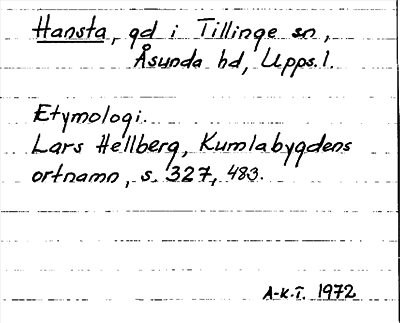 Hansta, gd i Tillinge sn,
Åsunda hd, Upps. l.
Etymologi.
Lars Hellberg, Kumlabygdens
ortnamn, s. 327, 483.
A-K.T. 1972